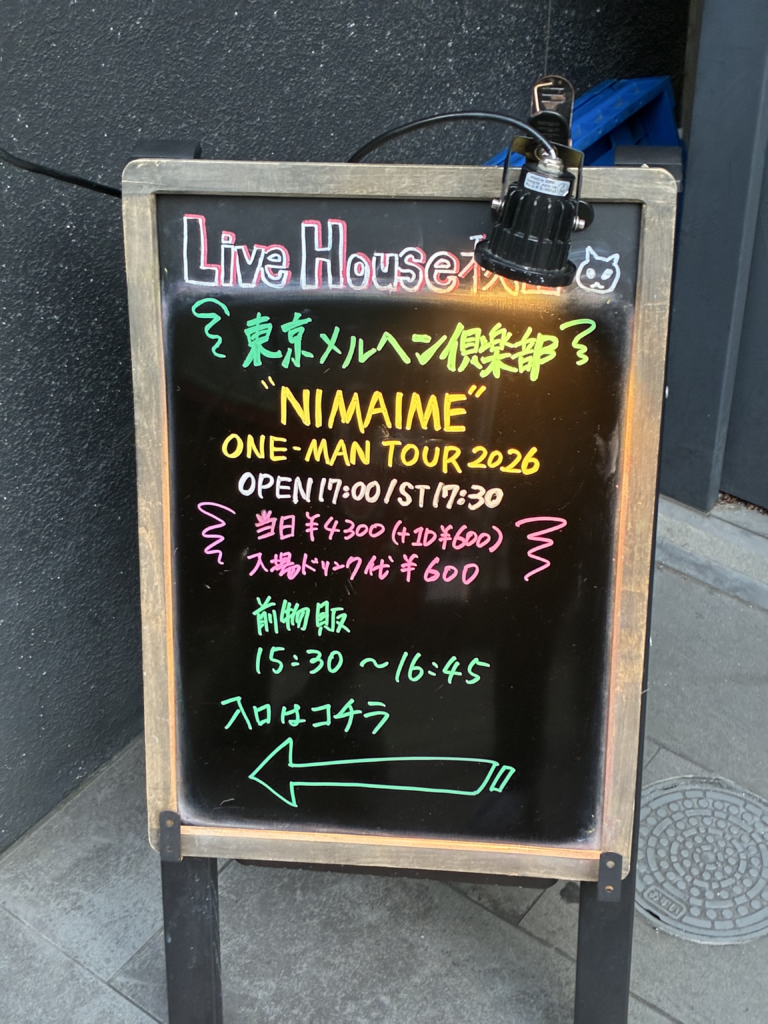 Live House
東京メルヘン倶楽部
"NIMAIME"
ONE-MAN TOUR 2026
OPEN 17:00 / ST 17:30
当日 ¥4300 (+1D¥600)
入場ドリンク代 ¥600
前物販
15:30 〜 16:45
入口はコチラ